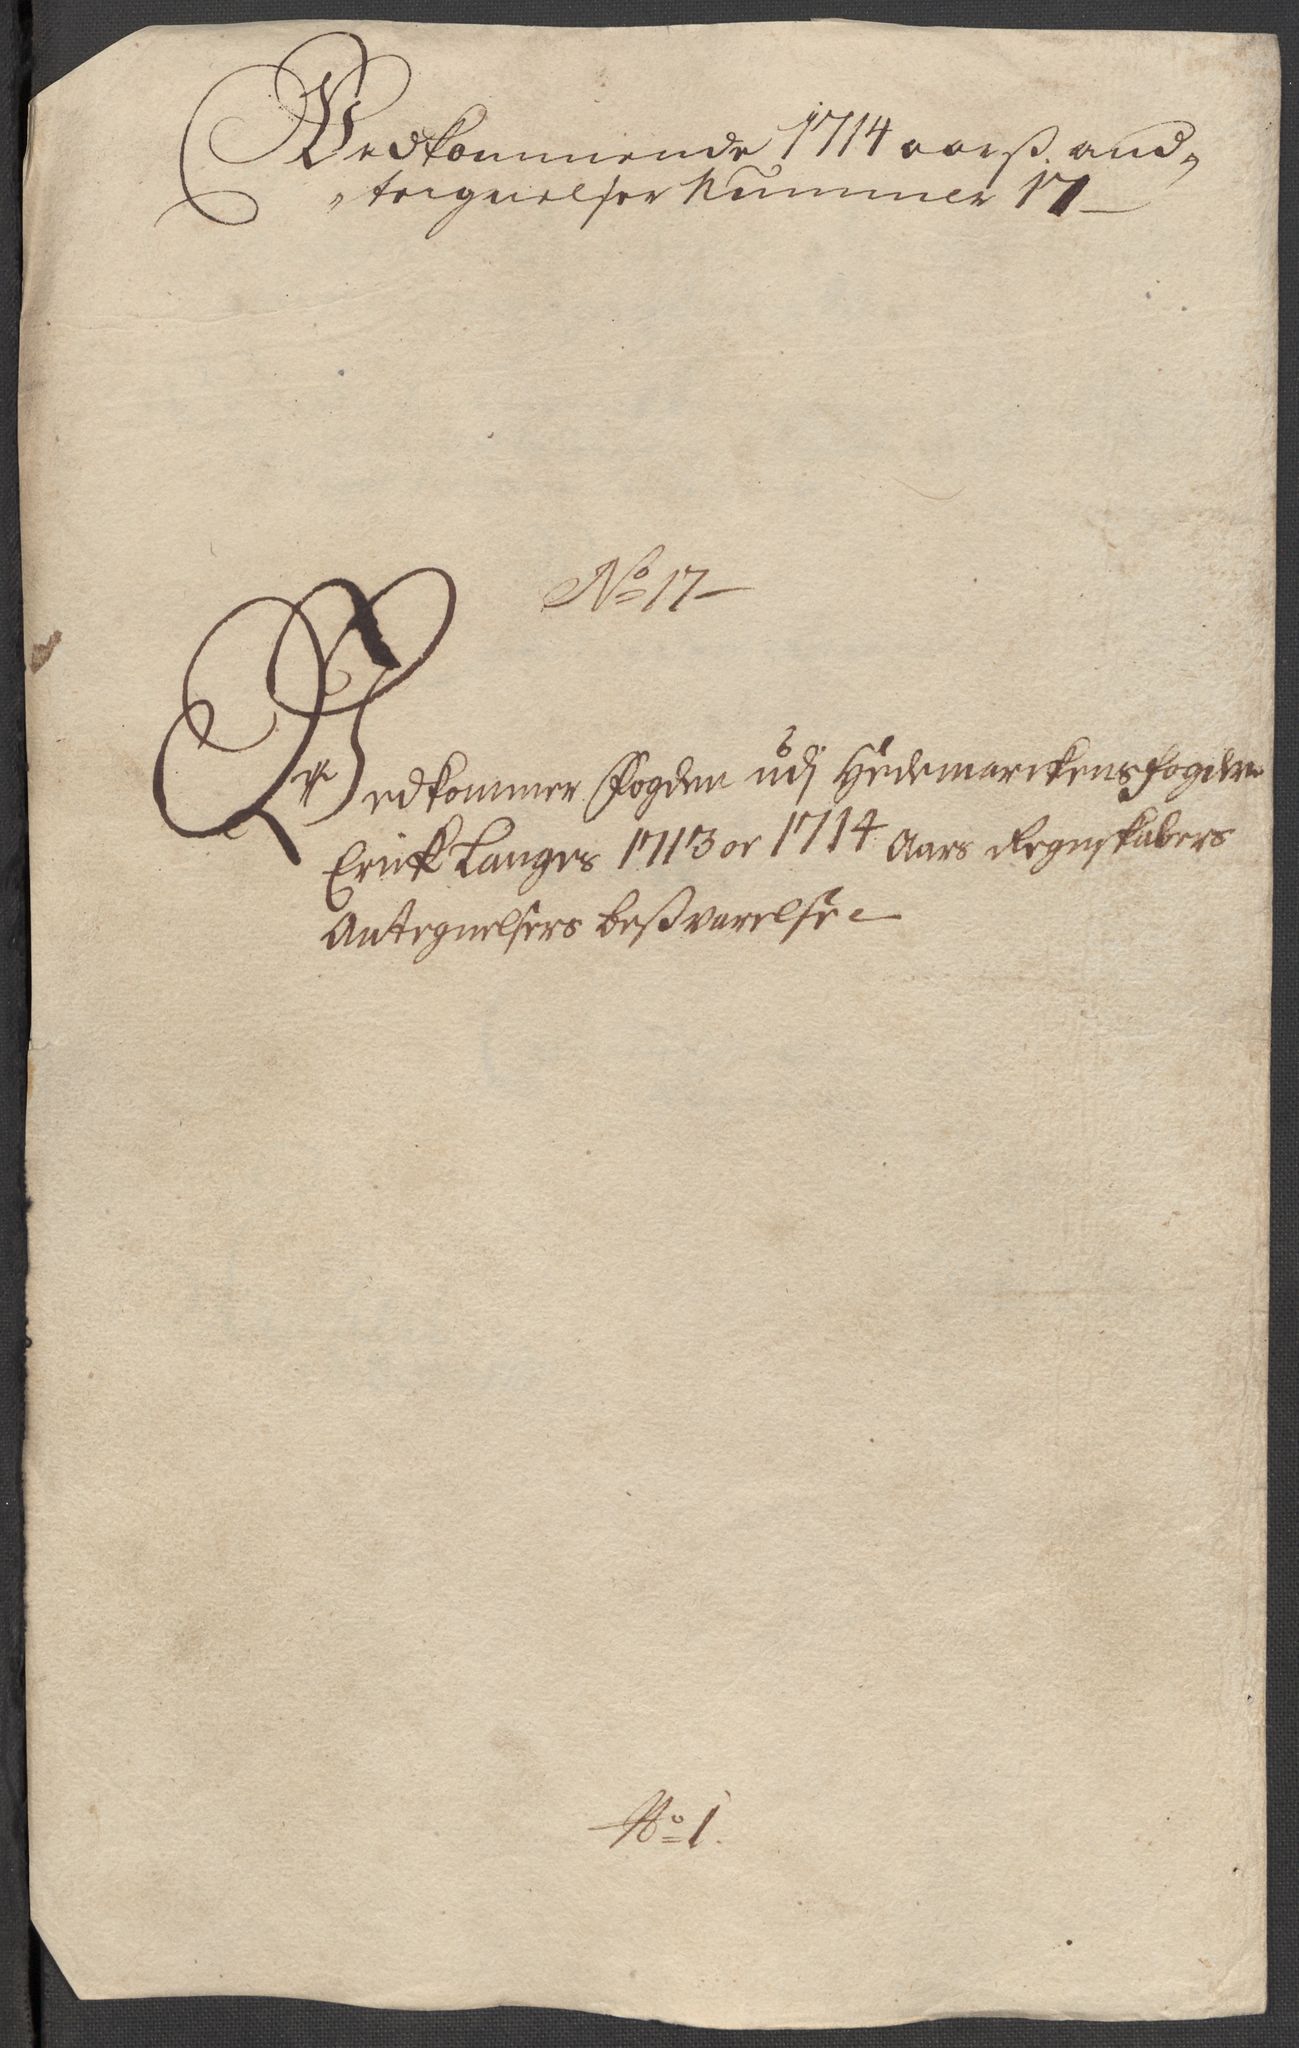 Vedkommende 1714 aarß. and,,
,,teignelser Nummer 17
No 17
Vedkommer Fogden udj Hedemarckens fogderie
Erick Langes 1713 oc 1714 Aars Regnskabers
Antegnelsers beßvarelse
No 1.